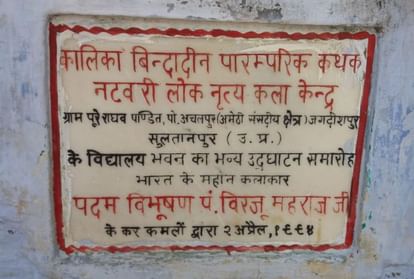 कालिका बिन्दादीन पारम्परिक कथक
नटवरी लोक नृत्य कला केन्द्र
ग्राम पूरेराघव पण्डित, पो. अचलपुर (अमेठी संसदीय क्षेत्र) जगदीशपुर
सुलतानपुर ( उ. प्र. )
के विद्यालय भवन का भव्य उद्घाटन समारोह
भारत के महान कलाकार
पदम विभूषण पं. विरजू महराज जी
के कर कमलों द्वारा २ अप्रैल, १९९४